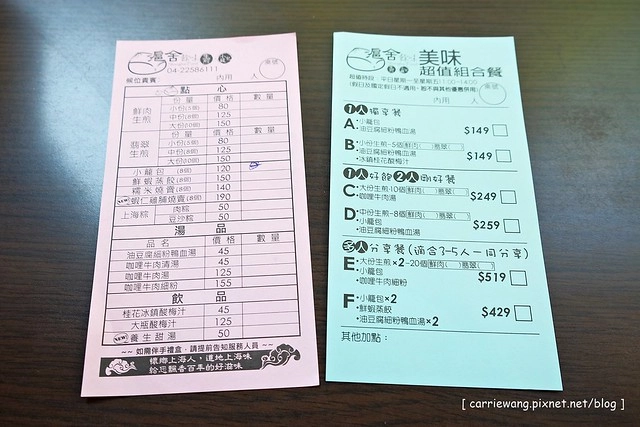 滬舍
04-22586111
候位貴賓 內用 人 桌號
點 心
份量 價格 數量
鮮肉生煎
小份(5個) 80
中份(8個) 125
大份(10個) 150
份量 價格 數量
翡翠生煎
小份(5個) 80
中份(8個) 125
大份(10個) 150
小籠包 (8個) 120
鮮蝦蒸餃 (8個) 150
糯米燒賣 (8個) 140
蝦仁雞脯燒賣(8個) 190
上海粽
肉粽 50
豆沙粽 50
湯 品
品名 價格 數量
油豆腐細粉鴨血湯 45
咖哩牛肉清湯 45
咖哩牛肉湯 125
咖哩牛肉細粉 155
飲 品
桂花冰鎮酸梅汁 45
大瓶酸梅汁 125
養生甜湯 50
~~ 如需伴手禮盒，請提前告知服務人員 ~~
懷鄉上海人，道地上海味
給您飄香百年的好滋味
滬舍
美味
超值組合餐
超值時段：平日星期一至星期五11:00-14:00
(假日及國定假日不適用，恕不與其他優惠併用)
內用 人 桌號
1人獨享餐
A •小籠包
•油豆腐細粉鴨血湯 $149
B •小份生煎-5個 鮮肉( )翡翠( )
•油豆腐細粉鴨血湯
•冰鎮桂花酸梅汁 $149
1人好飽2人剛好餐
C •大份生煎-10個 鮮肉( )翡翠( )
•咖哩牛肉湯 $249
D •中份生煎-8個 鮮肉( )翡翠( )
•小籠包
•油豆腐細粉鴨血湯 $259
多人分享餐(適合3-5人一同分享)
E •大份生煎×2-20個 鮮肉( )翡翠( )
•小籠包
•咖哩牛肉細粉 $519
F •小籠包×2
•鮮蝦蒸餃
•油豆腐細粉鴨血湯×2 $429
其他加點：
[ carriewang.pixnet.net/blog ]